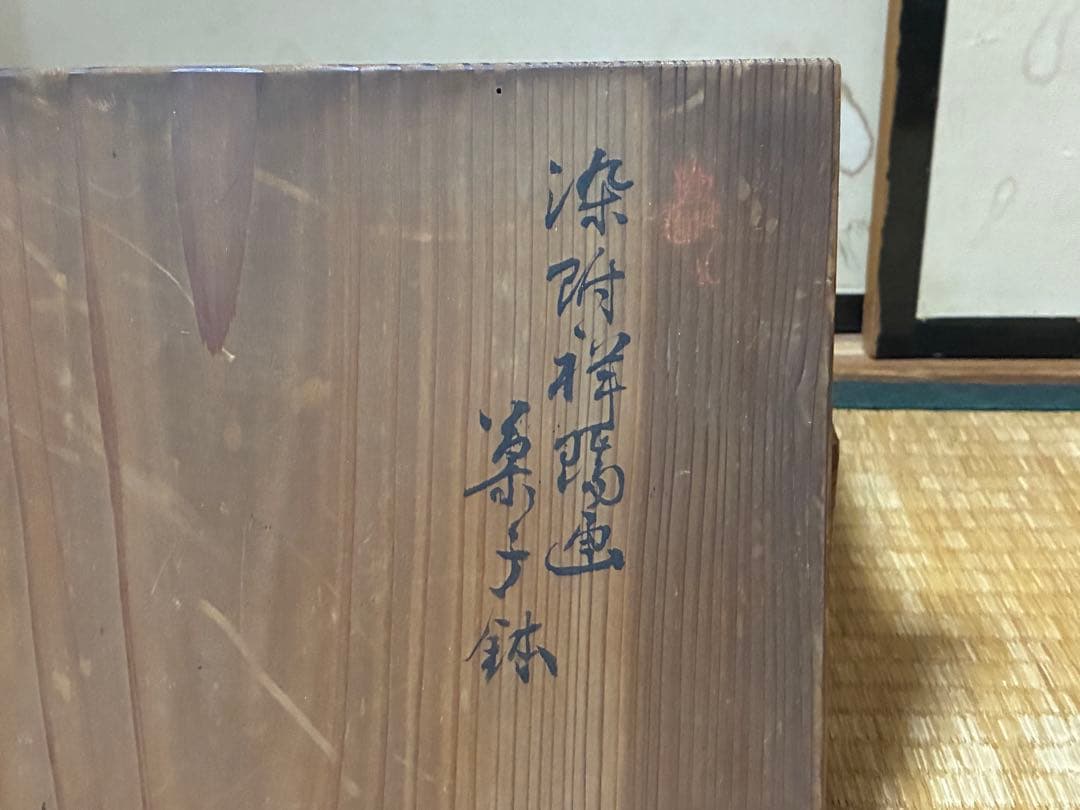 染附祥瑞画
菓子鉢